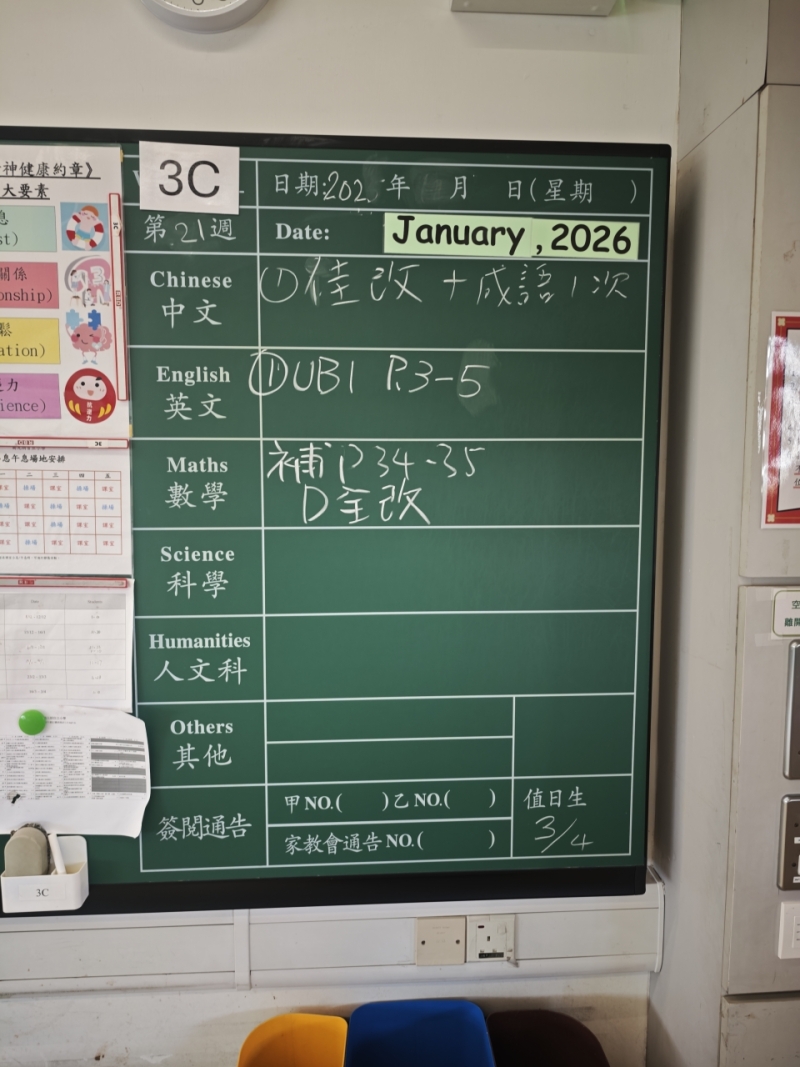 神健康約章》
大要素
st)
關係
onship)
鬆
ation)
力
ience)
抗逆力
息午息場地安排
一 二 三 四 五
3C
日期:202 年 月 日(星期 )
第21週
Date: January , 2026
Chinese
中文
①佳改+成語1次
English
英文
①UB1 P.3-5
Maths
數學
補P34-35
D全改
Science
科學
Humanities
人文科
Others
其他
簽閱通告
甲NO.( )乙NO.( )
家教會通告NO.( )
值日生
3/4
3C
空
離開